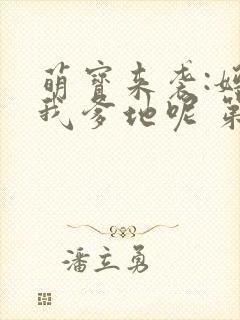 萌宝来袭:妈
我爹地呢 第
潘立勇